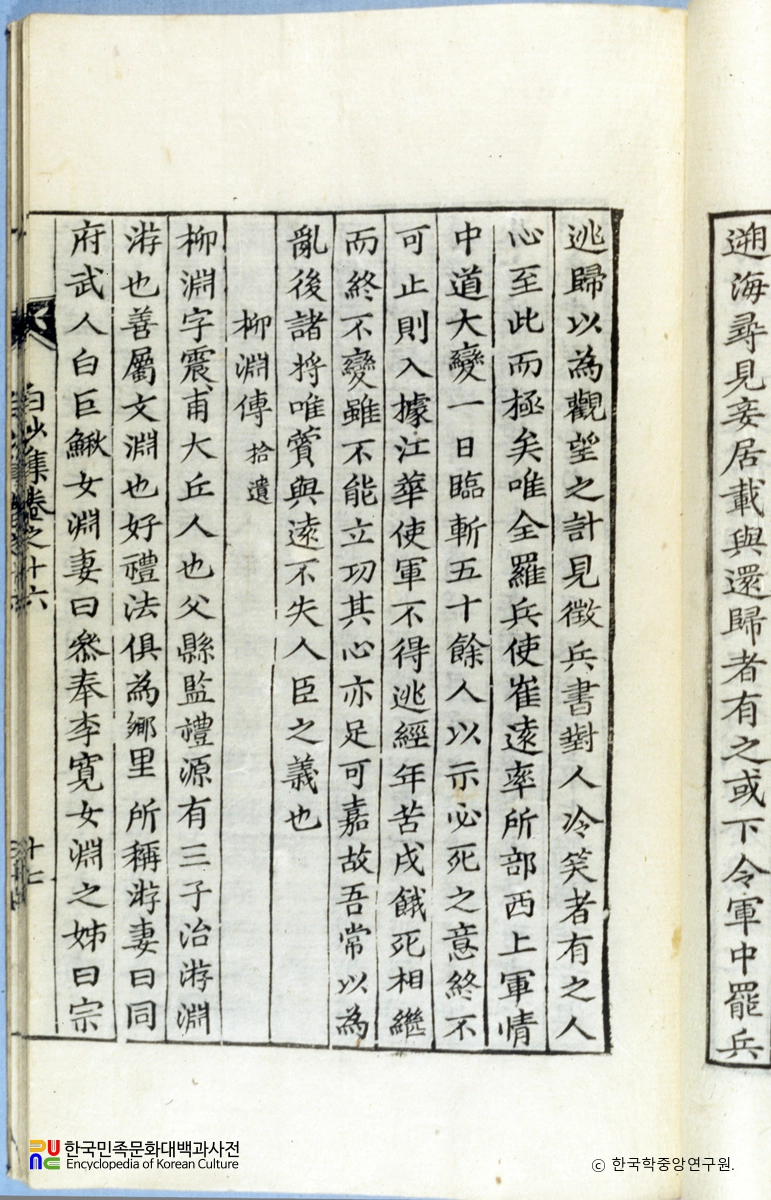 遡海尋見妾居載與還歸者有之或下令軍中罷兵
逃歸以為觀望之計見徵兵書對人冷笑者有之人
心至此而極矣唯全羅兵使崔遠率所部西上軍情
中道大變一日臨斬五十餘人以示必死之意終不
可止則入據江華使軍不得逃經年苦戍餓死相繼
而終不變雖不能立功其心亦足可嘉故吾常以為
亂後諸將唯賓與遠不失人臣之義也
柳淵傳 拾遺
柳淵字震甫大丘人也父縣監禮源有三子治游淵
游也善屬文淵也好禮法俱為鄉里所稱游妻曰同
府武人白巨鰍女淵妻曰參奉李寬女淵之姊曰宗
白沙集卷之十六
十七
한국민족문화대백과사전
Encyclopedia of Korean Culture
ⓒ 한국학중앙연구원.